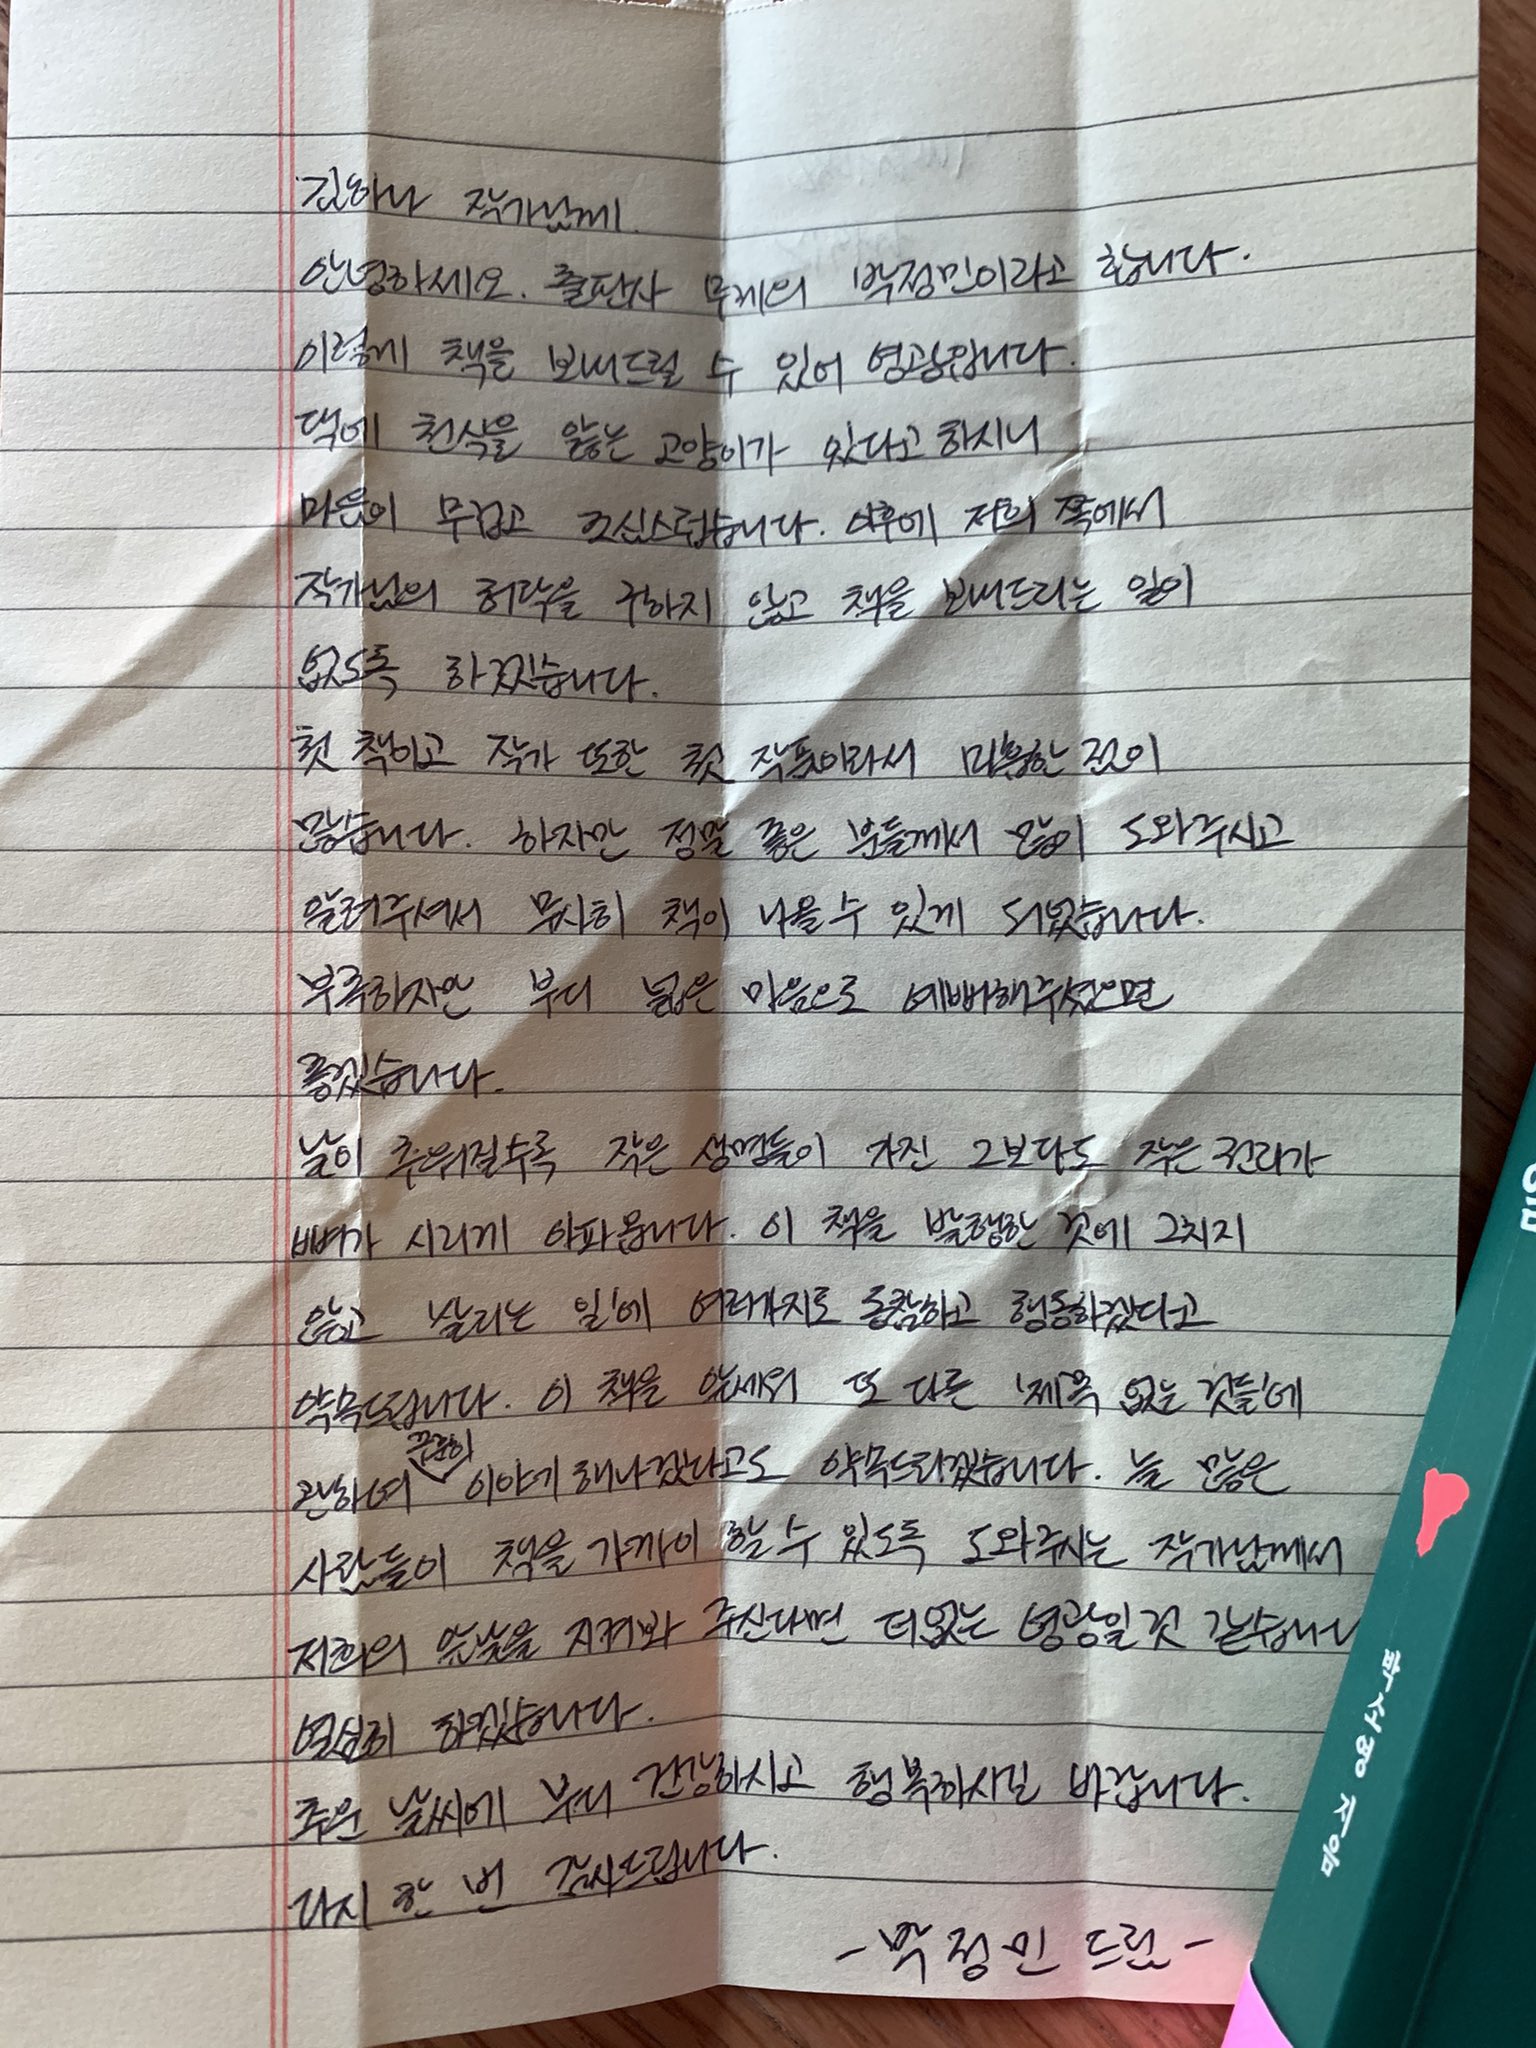 김하나 작가님께.
안녕하세요. 출판사 무제의 박정민이라고 합니다.
이렇게 책을 보내드릴 수 있어 영광입니다.
댁에 천식을 앓는 고양이가 있다고 하시니
마음이 무겁고 조심스럽습니다. 이후에 저희 쪽에서
작가님의 허락을 구하지 않고 책을 보내드리는 일이
없도록 하겠습니다.
첫 책이고 작가 또한 첫 작품이라서 미흡한 것이
많습니다. 하지만 정말 좋은 분들께서 많이 도와주시고
알려주셔서 무사히 책이 나올 수 있게 되었습니다.
부족하지만 부디 넓은 마음으로 예뻐해주셨으면
좋겠습니다.
날이 추워질수록 작은 생명들이 가진 그보다도 작은 권리가
뼈가 시리게 아파옵니다. 이 책을 발행한 것에 그치지
않고 '살리는 일'에 여러가지로 동참하고 행동하겠다고
약속드립니다. 이 책을 앞세워 또 다른 '제목 없는 것들'에
관하여 꾸준히 이야기 해나가겠다고도 약속드리겠습니다. 늘 많은
사람들이 책을 가까이 할 수 있도록 도와주시는 작가님께서
저희의 앞날을 지켜봐 주신다면 더없는 영광일 것 같습니다
열심히 하겠습니다.
추운 날씨에 부디 건강하시고 행복하시길 바랍니다.
다시 한 번 감사드립니다.
- 박정민 드림 -
박소영 지음